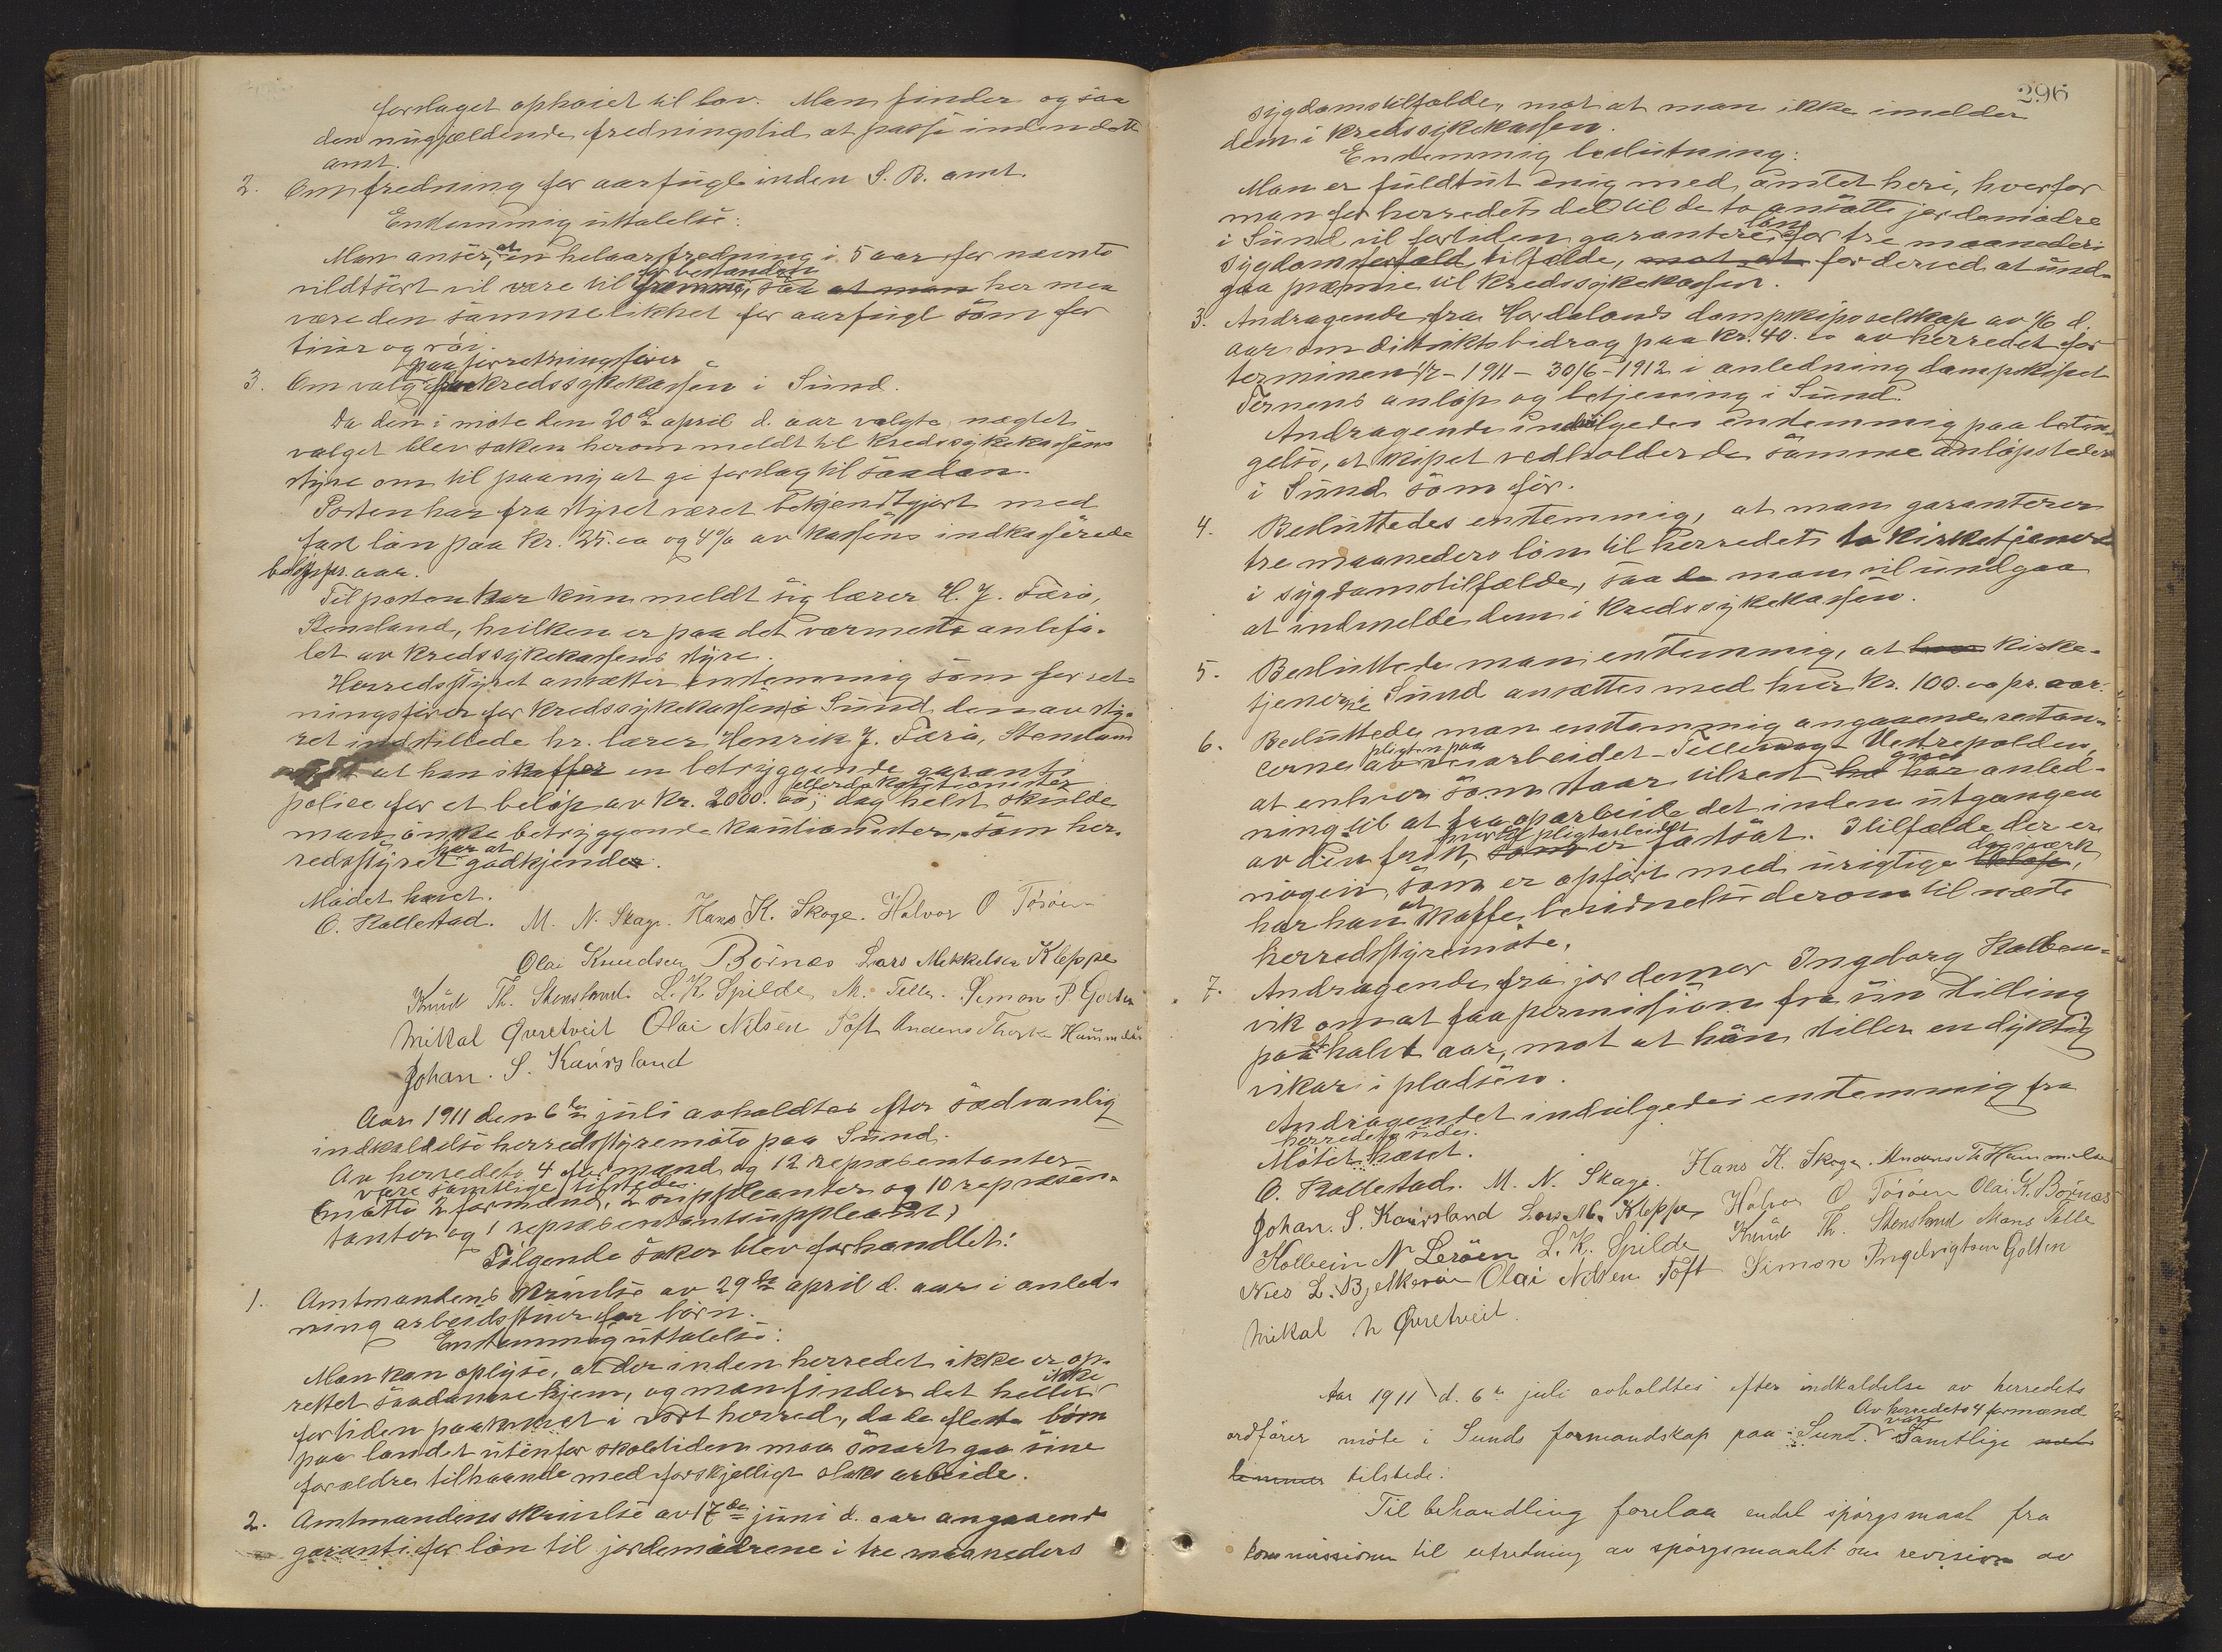 forslaget ophøiet til lov. Man finder ogsaa
den nugjældende fredningstid at passe inden dette
amt.
2. Om fredning for aarfugl inden S. B. amt.
Enstemmig uttalelse:
Man anser, at en helaarsfredning i 5 aar for nævnte
vildtsort vil være til for bestanden gavn, saa at man her maa
være den samme likhet for aarfugl som for
tiur og røi.
3. Om valg paa forretningsfører for kredssykekassen i Sund.
Da den i møte den 20de april d. aar valgte nægtet
valget blev saken herom meldt til kredssykekassens
styre om til paany at gi forslag til saadan.
Posten har fra styret været bekjendtgjort med
fast løn paa kr. 25.00 og 4% av kassens indkasserede
beløp pr. aar.
Til posten har kun meldt sig lærer H. J. Færø,
Stensland, hvilken er paa det varmeste anbefa-
let av kredssykekassens styre.
Herredsstyret ansætter enstemmig som forret-
ningsfører for kredssykekassen i Sund den av sty-
ret indstillede hr. lærer Henrik J. Færø, Stensland
at han skaffer en betryggende garanti
police for et beløp av kr. 2000.00, eller do kautionister dog helst skulde
man ønske betryggende kautionister, som her-
redsstyret har at godkjende.
Mødet hævet.
O. Kallestad. M. N. Skage. Hans K. Skoge. Halvor O Tösöen
Olai Knudsen Börnes Lars Mikkelsen Kleppe
Knud Th. Stensland. L. K. Spilde M. Telle. Simon P. Golten
Mikal Øvretveit Olai Nilsen Toft Anders Thorsen Hummelsn
Johan. S. Kausland
Aar 1911 den 6te juli avholdtes efter sædvanlig
indkaldelse herredsstyremøte paa Sund.
Av herredets 4 formænd og 12 repræsentanter
være samtlige tilstede.
(møtte 2 formænd, 2 suppleanter og 10 repræsen-
tanter og 1 repræsentantsuppleant)
Følgende saker blev forhandlet:
1. Amtmandens skrivelse av 29de april d. aar i anled-
ning arbeidsstuer for børn.
Enstemmig uttalelse:
Man kan oplyse, at der inden herredet ikke er op-
rettet saadanne hjem, og man finder det heller ikke
for tiden paakrævet i vort herred, da de fleste børn
paa landet utenfor skoletiden maa snart gaa sine
forældre tilhaande med forskjelligt slaks arbeide.
2. Amtmandens skrivelse av 17de juni d. aar angaaende
garanti for løn til jordemødrene i tre maaneders
296
sygdomstilfælde, mot at man ikke imelder
dem i kredssykekassen.
Enstemmig beslutning:
Man er fuldtut enig med amtet heri, hvorfor
man for herredets del til de to ansatte jordemødre
i Sund vil fortiden garantere løn for tre maaneder i
sygdomsforfald tilfælde, mot at for derved at und-
gaa præmie til kredssykekassen.
3. Andragende fra Hordalands dampskipsselskap av 16 d.
aar om distriktsbidrag paa kr. 40.00 av herredet for
terminen 1/7 - 1911 - 30/6 - 1912 i anledning dampskipet
Ternens anløp og betjening i Sund.
Andragende indvilgedes enstemmig paa betin-
gelse, at skipet vedholder de samme anløpssteder
i Sund som før.
4. Besluttedes enstemmig, at man garanterer
tre maaneders løn til herredets to kirketjenere
i sygdomstilfælde, saa da man vil undgaa
at indmelde dem i kredssykekassen.
5. Besluttede man enstemmig, at kirke-
tjenerne i Sund ansættes med hver kr. 100.00 pr. aar.
6. Besluttede man enstemmig angaaende restan-
cerne av pligten paa veiarbeidet Tellevaag - Vestrepolden,
at enhver som staar tilrest ha gives har anled-
ning til at faa oparbeide det inden utgangen
av den frist, som er hvortil pligtarbeidet fastsat. I tilfælde der er
nogen, som er opført med urigtige dagsverk,
har han at skaffe bevidnelse derom til næste
herredsstyremøte.
7. Andragende fra jordemor Ingeborg Kolben-
vik om at faa permission fra sin stilling
paa et halvt aar, mot at hun stiller en dyktig
vikar i pladsen.
Andragendet indvilgedes enstemmig fra
herredets side.
Møtet hævet.
O. Kallestad. M. N. Skage. Hans K. Skoge. Anders Th Hummelsn
Johan. S. Kausland Lars M. Kleppe Halvor O Tösöen Olai K. Börnes
Kolbein N Lerøen L. K. Spilde Knud Th. Stensland Mons Telle
Nies L. Bjelkerøen Olai Nilsen Toft Simon Ingebrigtsen Golten
Mikal N Øvretveit.
Aar 1911 d. 6te juli avholdtes efter indkaldelse av herredets
ordfører møte i Sunds formandskap paa Sund. Av herredets 4 formænd være samtlige med-
lemmer tilstede.
Til behandling forelaa endel spørgsmaal fra
kommissionen til utredning av spørgsmaalet om revision av